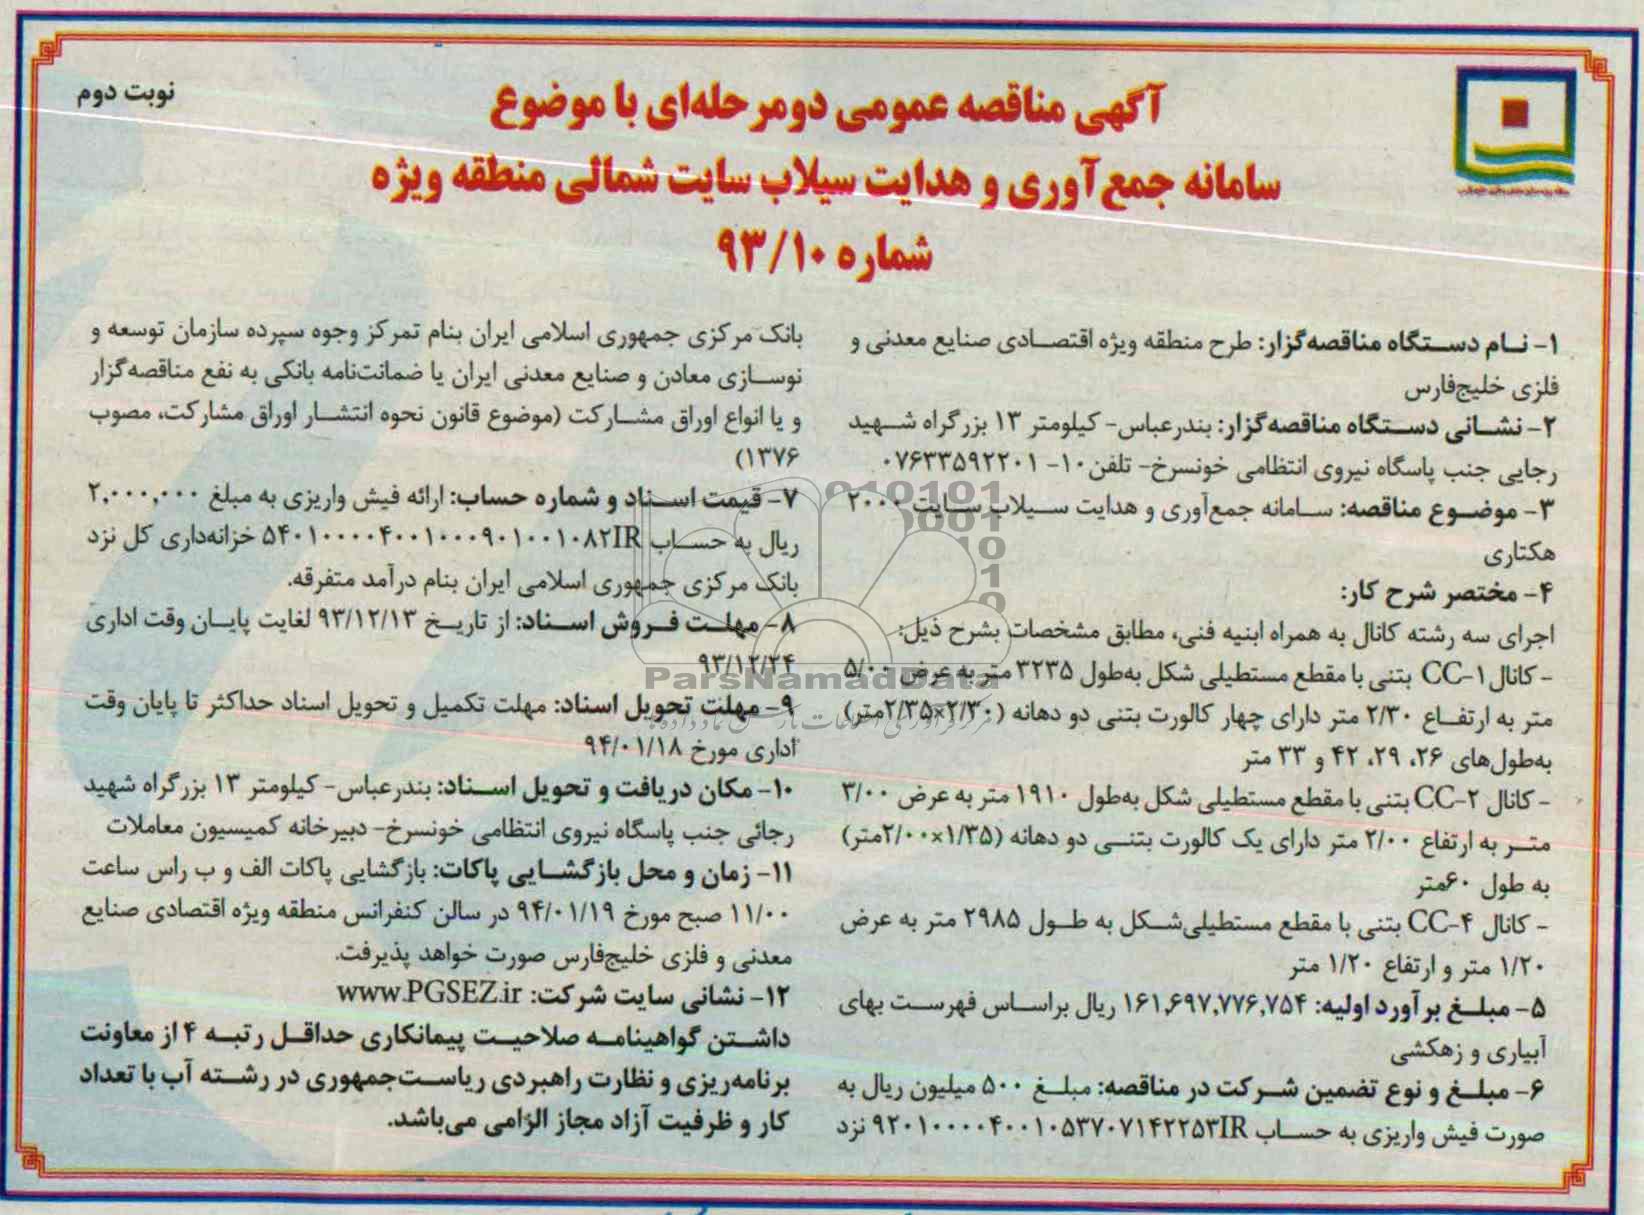 نوبت دوم
آگهی مناقصه عمومی دومرحله‌ای با موضوع
سامانه جمع‌آوری و هدایت سیلاب سایت شمالی منطقه ویژه
شماره ۹۳/۱۰
۱- نام دستگاه مناقصه‌گزار: طرح منطقه ویژه اقتصادی صنایع معدنی و
فلزی خلیج‌فارس
۲- نشانی دستگاه مناقصه‌گزار: بندرعباس- کیلومتر ۱۳ بزرگراه شهید
رجایی جنب پاسگاه نیروی انتظامی خونسرخ- تلفن۱۰- ۰۷۶۳۳۵۹۲۲۰۱
۳- موضوع مناقصه: سامانه جمع‌آوری و هدایت سیلاب سایت ۲۰۰۰
هکتاری
۴- مختصر شرح کار:
اجرای سه رشته کانال به همراه ابنیه فنی، مطابق مشخصات بشرح ذیل:
- کانال CC-۱ بتنی با مقطع مستطیلی شکل به‌طول ۳۲۳۵ متر به عرض ۵/۰۰
متر به ارتفاع ۲/۳۰ متر دارای چهار کالورت بتنی دو دهانه (۲/۳۰×۲/۳۵متر)
به‌طول‌های ۲۶، ۲۹، ۴۲ و ۳۳ متر
- کانال CC-۲ بتنی با مقطع مستطیلی شکل به‌طول ۱۹۱۰ متر به عرض ۳/۰۰
متر به ارتفاع ۲/۰۰ متر دارای یک کالورت بتنی دو دهانه (۱/۳۵×۲/۰۰متر)
به طول ۶۰متر
- کانال CC-۴ بتنی با مقطع مستطیلی‌شکل به طول ۲۹۸۵ متر به عرض
۱/۲۰ متر و ارتفاع ۱/۲۰ متر
۵- مبلغ برآورد اولیه: ۱۶۱,۶۹۷,۷۷۶,۷۵۴ ریال براساس فهرست بهای
آبیاری و زهکشی
۶- مبلغ و نوع تضمین شرکت در مناقصه: مبلغ ۵۰۰ میلیون ریال به
صورت فیش واریزی به حساب ۹۲۰۱۰۰۰۰۴۰۰۱۰۵۳۷۰۷۱۴۲۲۵۳IR نزد
بانک مرکزی جمهوری اسلامی ایران بنام تمرکز وجوه سپرده سازمان توسعه و
نوسازی معادن و صنایع معدنی ایران یا ضمانت‌نامه بانکی به نفع مناقصه‌گزار
و یا انواع اوراق مشارکت (موضوع قانون نحوه انتشار اوراق مشارکت، مصوب
۱۳۷۶)
۷- قیمت اسناد و شماره حساب: ارائه فیش واریزی به مبلغ ۲,۰۰۰,۰۰۰
ریال به حساب ۵۴۰۱۰۰۰۰۴۰۰۱۰۰۰۹۰۱۰۰۱۰۸۲IR خزانه‌داری کل نزد
بانک مرکزی جمهوری اسلامی ایران بنام درآمد متفرقه.
۸- مهلت فروش اسناد: از تاریخ ۹۳/۱۲/۱۳ لغایت پایان وقت اداری
۹۳/۱۲/۲۴
۹- مهلت تحویل اسناد: مهلت تکمیل و تحویل اسناد حداکثر تا پایان وقت
اداری مورخ ۹۴/۰۱/۱۸
۱۰- مکان دریافت و تحویل اسناد: بندرعباس- کیلومتر ۱۳ بزرگراه شهید
رجائی جنب پاسگاه نیروی انتظامی خونسرخ- دبیرخانه کمیسیون معاملات
۱۱- زمان و محل بازگشایی پاکات: بازگشایی پاکات الف و ب راس ساعت
۱۱/۰۰ صبح مورخ ۹۴/۰۱/۱۹ در سالن کنفرانس منطقه ویژه اقتصادی صنایع
معدنی و فلزی خلیج‌فارس صورت خواهد پذیرفت.
۱۲- نشانی سایت شرکت: www.PGSEZ.ir
داشتن گواهینامه صلاحیت پیمانکاری حداقل رتبه ۴ از معاونت
برنامه‌ریزی و نظارت راهبردی ریاست‌جمهوری در رشته آب با تعداد
کار و ظرفیت آزاد مجاز الزامی می‌باشد.
ParsNamadData